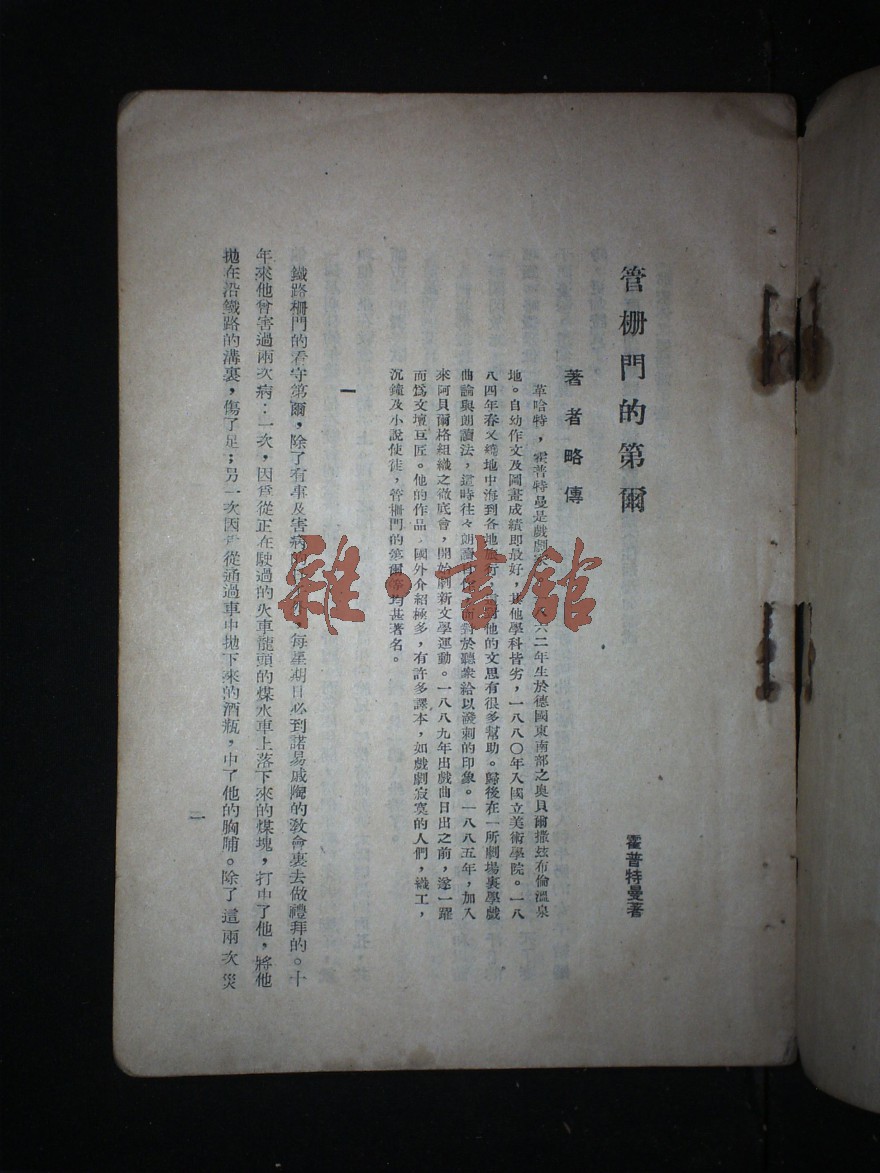 管柵門的第爾
霍普特曼著
著者略傳
革哈特，霍普特曼是戲劇 八六二年生於德國東南部之奧貝爾撒茲布倫溫泉
地。自幼作文及圖畫成績即最好，其他學科皆劣，一八八〇年入國立美術學院。一八
八四年春又繞地中海到各地旅行， 對他的文思有很多幫助。歸後在一所劇場裏學戲
曲論與朗讀法，這時往々朗讀 而對於聽衆給以潑刺的印象。一八八五年，加入
來阿貝爾格組織之徹底會，開始劇新文學運動。一八八九年出戲曲日出之前，遂一躍
而爲文壇亘匠。他的作品，國外介紹極多，有許多譯本，如戲劇寂寞的人們，織工，
沉鐘及小說使徒，管柵門的第爾等均甚著名。
一
鐵路柵門的看守第爾，除了有事及害病 外，每星期日必到諾易戚陶的敎會裏去做禮拜的。十
年來他曾害過兩次病：一次，因爲從正在駛過的火車龍頭的煤水車上落下來的煤塊，打中了他，將他
拋在沿鐵路的溝裏，傷了足；另一次因爲從通過車中拋下來的酒瓶，中了他的胸脯。除了這兩次災
一
雜·書館